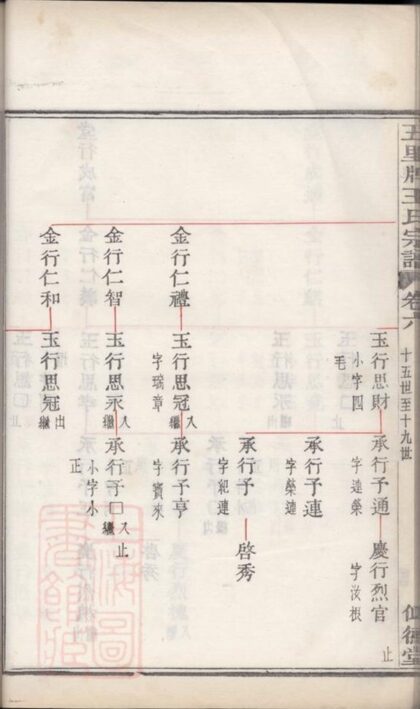 五里牌王氏宗譜 卷六 十五世至十九世
玉行思財 小字四毛
承行予通 字達榮
慶行烈官 字汝根 止
承行予連 字榮連
承行予 字紀連
啓秀
金行仁禮
玉行思冠 入繼 字瑞章
承行予亨 字寶來
金行仁智
玉行思永 入繼
承行予口 入繼 止 小字小正
金行仁和
玉行思冠 出繼